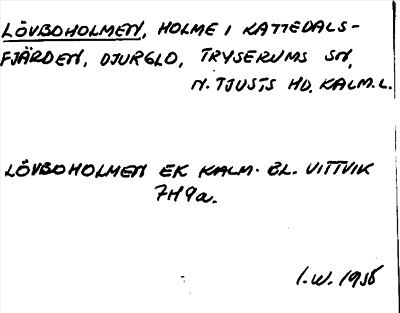 LÖVBOHOLMEN, HOLME I KATTEDALS-
FJÄRDEN, DJURGLO, TRYSERUMS SN,
N. TJUSTS HD, KALM.L.
LÖVBOHOLMEN EK KALM. BL. VITTVIK
7H9a.
I.W.